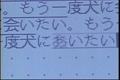 。もう一度犬に
会いたい。もう一
度犬にあいたい